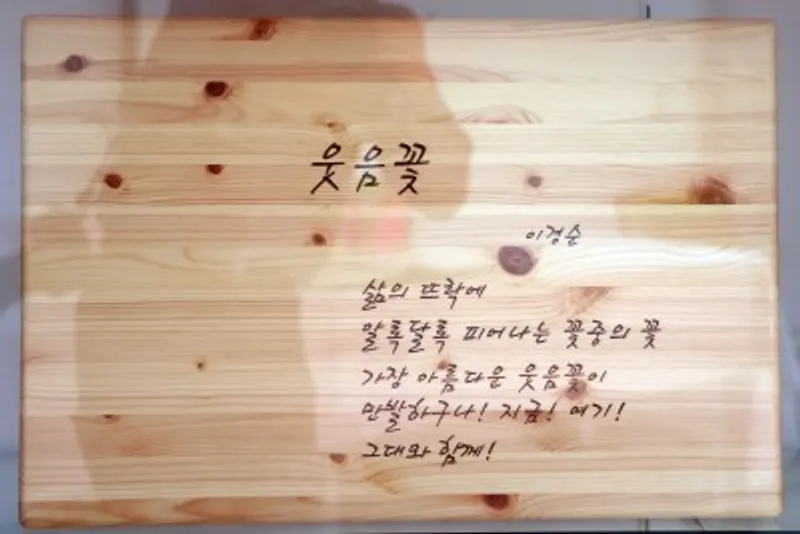 웃음꽃
이경순
삶의 뜨락에
알록달록 피어나는 꽃중의 꽃
가장 아름다운 웃음꽃이
만발하구나! 지금! 여기!
그대와 함께!